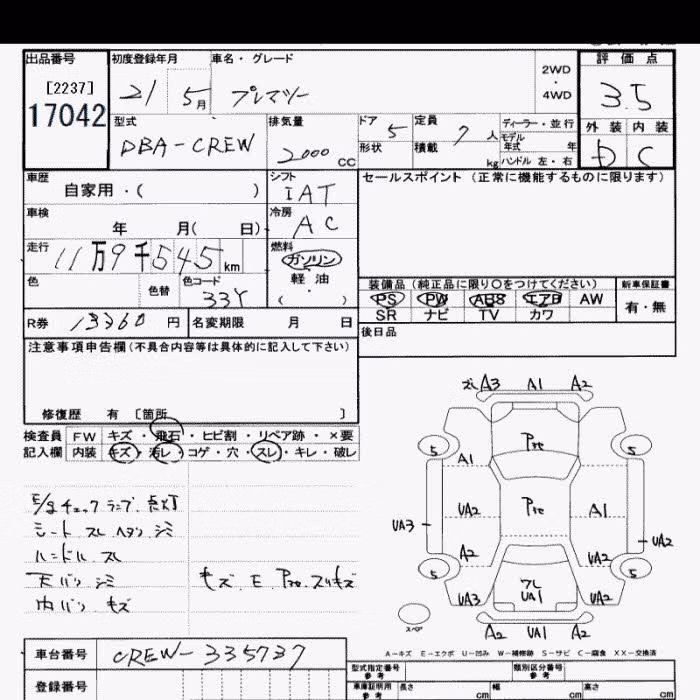 出品番号 初度登録年月 車名・グレード 2WD ・ 4WD 評価点
[2237]
17042 21 5月 プレマシー 3.5
型式 排気量 ドア 5 定員 7人 ディーラー・並行 外装 内装
DBA-CREW 2000cc 形状 積載 kg モデル年式 年 D C
ハンドル 左・右
車歴 シフト セールスポイント(正常に機能するものに限ります)
自家用・( ) IAT
車検 年 月( 日) 冷房 AC
走行 11万9千545km 燃料 ガソリン
軽油
( )
色 色替 色コード 33Y
装備品(純正品に限り○をつけてください) 新車保証書
PS PW ABS エアB AW 有・無
SR ナビ TV カワ
R券 13360円 名変期限 月 日 後日品
注意事項申告欄(不具合内容等は具体的に記入して下さい)
修復歴 有 [箇所 ]
検査員 FW キズ・飛石・ヒビ割・リペア跡・×要
記入欄 内装 キズ・汚レ・コゲ・穴・スレ・キレ・破レ
E/gチェックランプ点灯
シート スレ ヘタリ シミ
ハンドル スレ
天バリ シミ
内バリ キズ
A3 A1 A2
5 5
A1
UA2 A1
UA3 UA2
A2 UA2
5 5
UA3 UA1 UA2
スペア
A2 UA1 A2
A-キズ E-エクボ U-凹み W-補修跡 S-サビ C-腐食 XX-交換済
車台番号 CREW-335737
登録番号
型式指定番号 参考 類別区分番号 参考
車庫証明用 参考 長さ cm 幅 cm 高さ cm